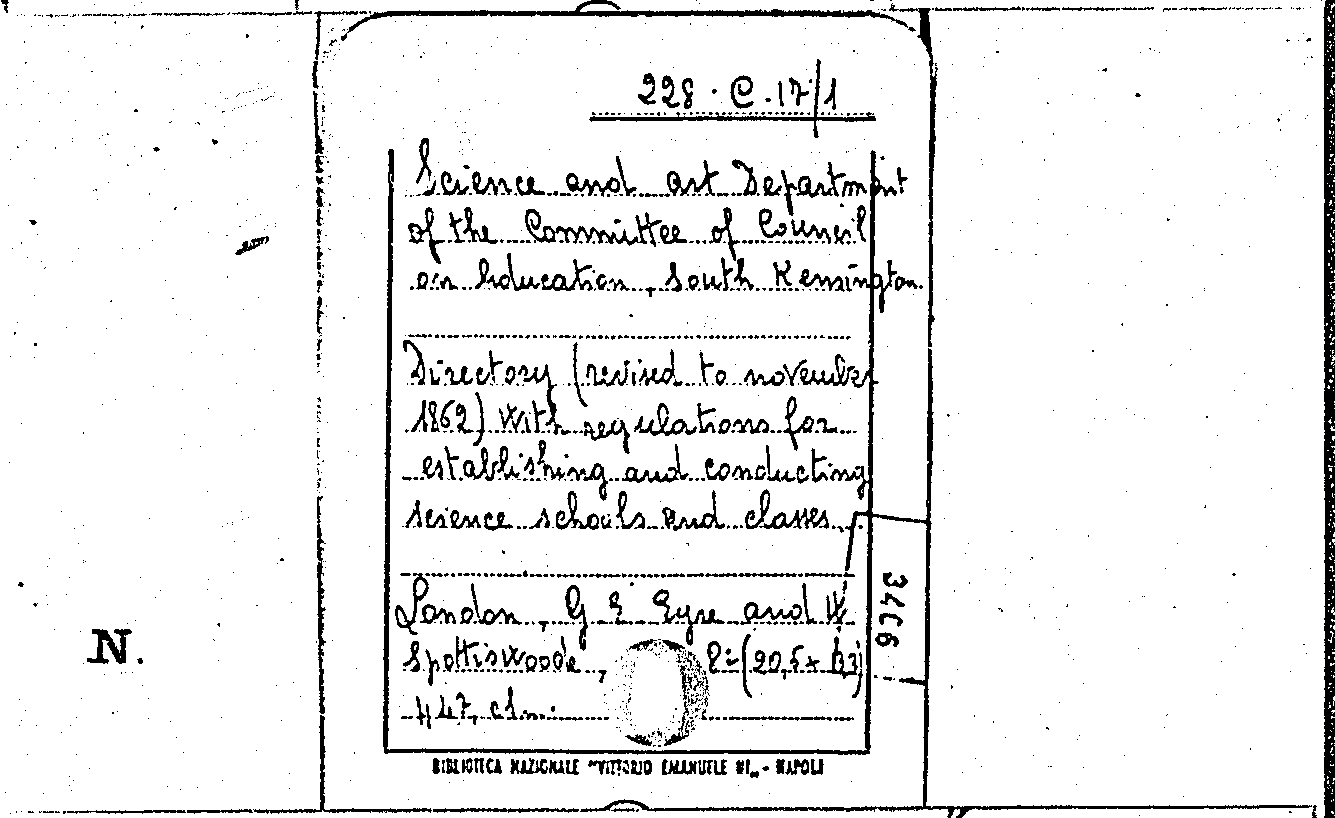 228 · C . 17/1
Science and art Department
of the Committee of Council
on Education, South Kensington.
Directory (revised to november
1862) With regulations for
establishing and conducting
science schools and classes...
London, G E Eyre and W
Spottiswoode, 8º (20,5x
N.
BIBLIOTECA NAZIONALE "VITTORIO EMANUELE III„ - NAPOLI